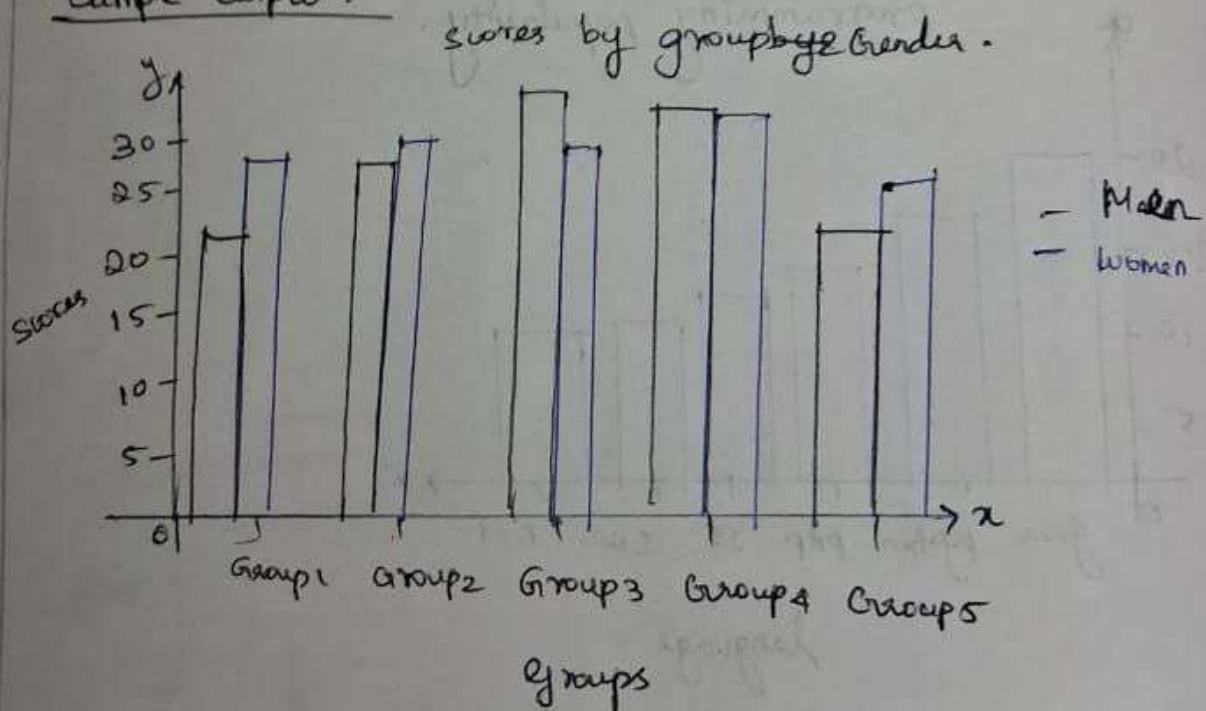 scores by groupbye Gender.
y
30
25
20
15
10
5
0
Scores
x
Group1 Group2 Group3 Group4 Group5
Groups
- Men
- Women